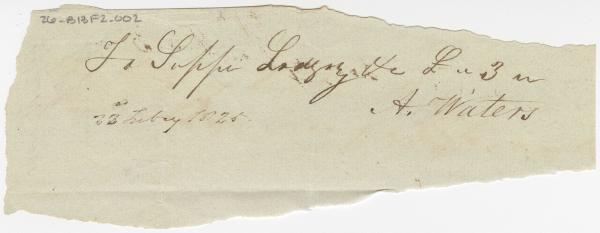 26-B13F2-002
To Suppr Lodging &c £ " 3 "
A. Waters
23d Febry 1825.